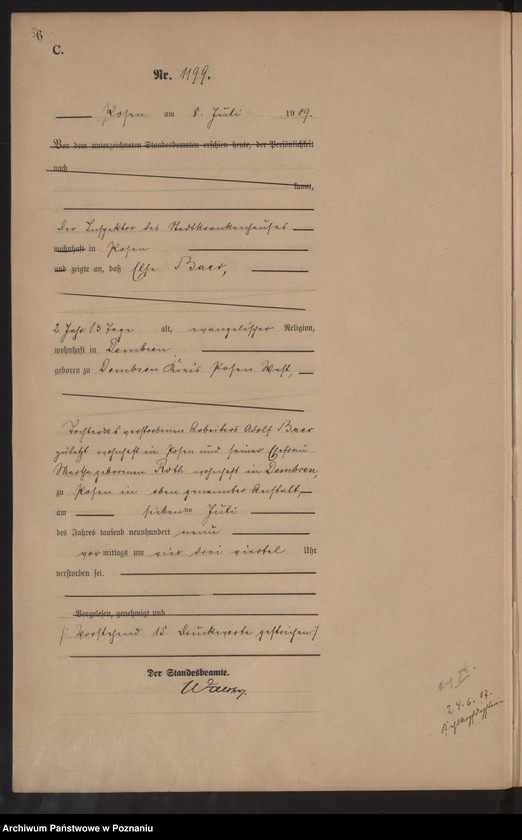 6
C.
Nr. 1199.
Posen am 8. Juli 1909.
Vor dem unterzeichneten Standesbeamten erschien heute, der Persönlichkeit
nach
kannt,
der Inspektor des Stadtkrankenhauses
wohnhaft in Posen
und zeigte an, daß Else Baer,
2 Jahr 13 Tage alt, evangelischer Religion,
wohnhaft in Dembsen,
geboren zu Dembsen Kreis Posen West,
Tochter des verstorbenen Arbeiters Adolf Baer
zuletzt wohnhaft in Posen und seiner Ehefrau
Martha geborenen Roth wohnhaft in Dembsen,
zu Posen in oben genannter Anstalt,
am sieben ten Juli
des Jahres tausend neunhundert neun
vor mittags um vier drei viertel Uhr
verstorben sei.
Vorgelesen, genehmigt und
/: Vorstehend 15 Druckworte gestrichen :/
Der Standesbeamte.
24. 6. 07.
Archiwum Państwowe w Poznaniu